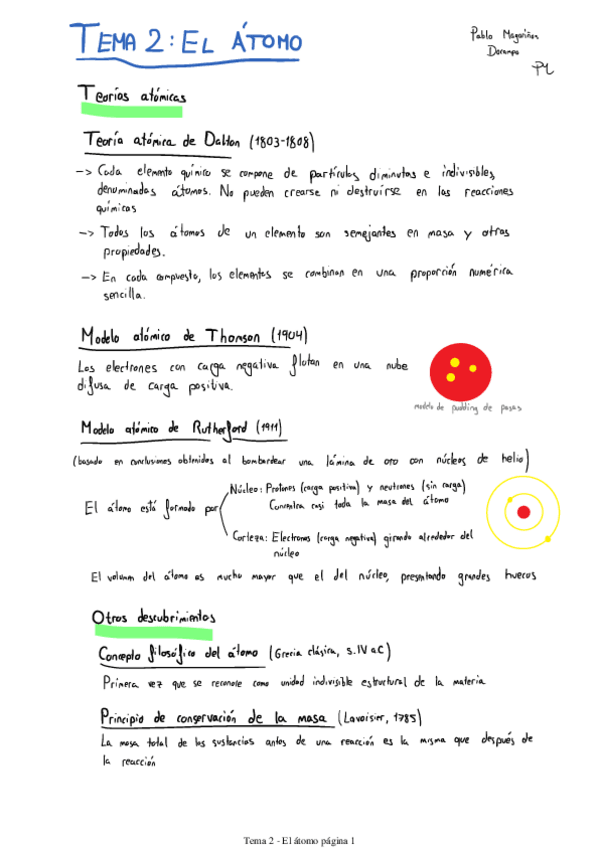 TEMA 2: EL ÁTOMO
Pablo Magariños
Docampo
PM
Teorías atómicas
Teoría atómica de Dalton (1803-1808)
-> Cada elemento químico se compone de partículas diminutas e indivisibles,
denominadas átomos. No pueden crearse ni destruirse en las reacciones
químicas
-> Todos los átomos de un elemento son semejantes en masa y otras
propiedades.
-> En cada compuesto, los elementos se combinan en una proporción numérica
sencilla.
Modelo atómico de Thomson (1904)
Los electrones con carga negativa flotan en una nube
difusa de carga positiva.
modelo de pudding de pasas
Modelo atómico de Rutherford (1911)
(basado en conclusiones obtenidas al bombardear una lámina de oro con núcleos de helio)
El átomo está formado por
Núcleo: Protones (carga positiva) y neutrones (sin carga)
Concentra casi toda la masa del átomo
Corteza: Electrones (carga negativa) girando alrededor del
núcleo
El volumen del átomo es mucho mayor que el del núcleo, presentando grandes huecos
Otros descubrimientos
Concepto filosófico del átomo (Grecia clásica, s.IV aC)
Primera vez que se reconoce como unidad indivisible estructural de la materia
Principio de conservación de la masa (Lavoisier, 1785)
La masa total de las sustancias antes de una reacción es la misma que después de
la reacción
Tema 2 - El átomo página 1